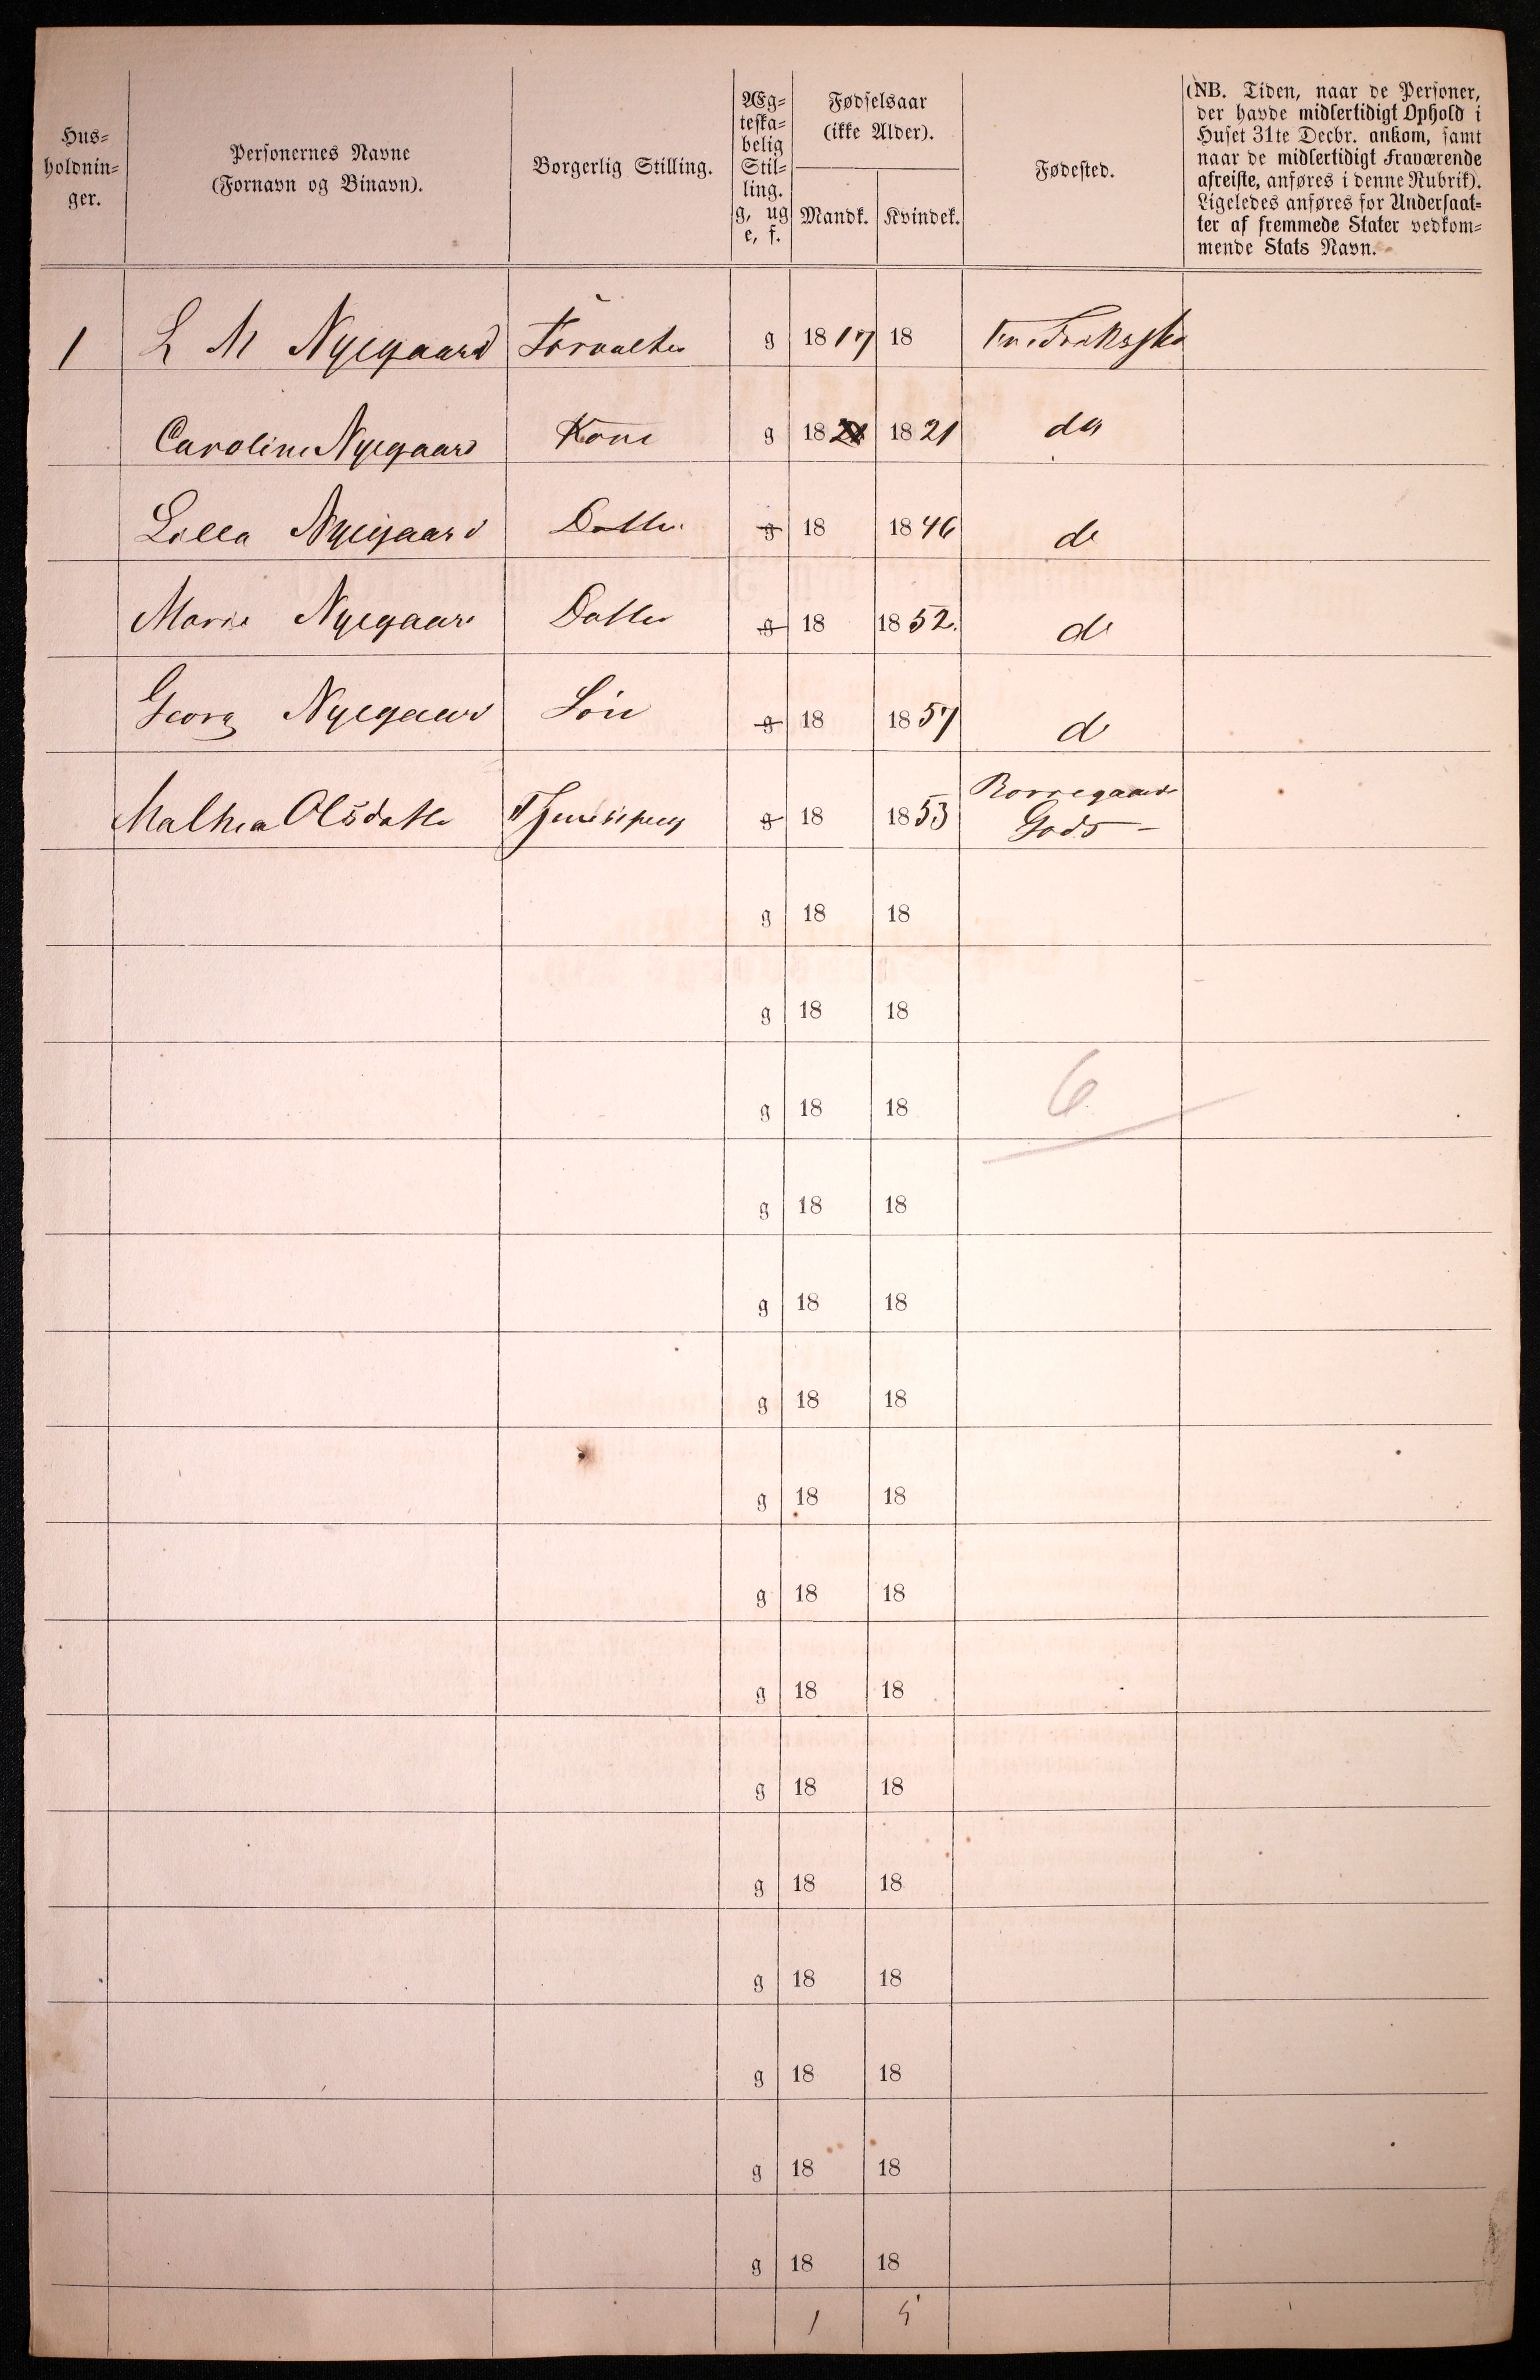 Hus-
holdnin-
ger.
Personernes Navne
(Fornavn og Binavn).
Borgerlig Stilling.
Æg-
teska-
belig
Stil-
ling.
g, ug
e, f.
Fødselsaar
(ikke Alder).
Mandk. Kvindek.
Fødested.
(NB. Tiden, naar de Personer,
der havde midlertidigt Ophold i
Huset 31te Decbr. ankom, samt
naar de midlertidigt Fraværende
afreiste, anføres i denne Rubrik).
Ligeledes anføres for Undersaat-
ter af fremmede Stater vedkom-
mende Stats Navn.
1 L M Nyegaard Forvalter g 1817 18
Caroline Nyegaard Kone g 18 1821 do
Lilla Nyegaard Datter g 18 1846 do
Marie Nyegaard Datter g 18 1852. do
Georg Nyegaard Sön g 18 1857 do
Mathea Olsdatter g 18 1853 Borregaard
Gods
g 18 18
g 18 18
g 18 18 6
g 18 18
g 18 18
g 18 18
g 18 18
g 18 18
g 18 18
g 18 18
g 18 18
g 18 18
g 18 18
g 18 18
g 18 18
1 5